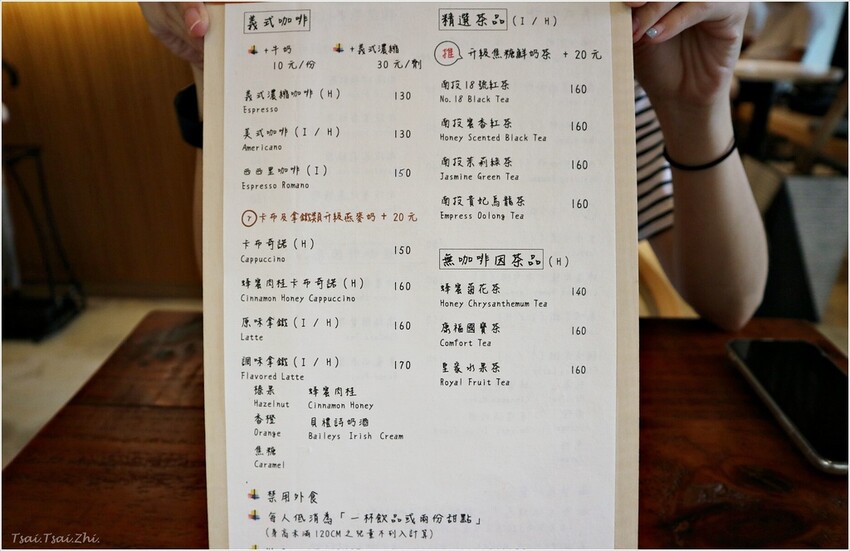 義式咖啡
+牛奶 +義式濃縮
10元/份 30元/劑
義式濃縮咖啡(H) 130
Espresso
美式咖啡(I/H) 130
Americano
西西里咖啡(I) 150
Espresso Romano
卡布及拿鐵類升級燕麥奶+20元
卡布奇諾(H) 150
Cappuccino
蜂蜜肉桂卡布奇諾(H) 160
Cinnamon Honey Cappuccino
原味拿鐵(I/H) 160
Latte
調味拿鐵(I/H) 170
Flavored Latte
榛果 蜂蜜肉桂
Hazelnut Cinnamon Honey
香橙 貝禮詩奶酒
Orange Baileys Irish Cream
焦糖
Caramel
禁用外食
每人低消為「一杯飲品或兩份甜點」
(身高未滿120CM之兒童不列入計算)
精選茶品(I/H)
推 升級焦糖鮮奶茶 +20元
南投18號紅茶 160
No.18 Black Tea
南投蜜香紅茶 160
Honey Scented Black Tea
南投茉莉綠茶 160
Jasmine Green Tea
南投貴妃烏龍茶 160
Empress Oolong Tea
無咖啡因茶品(H)
蜂蜜菊花茶 140
Honey Chrysanthemum Tea
康福國寶茶 160
Comfort Tea
皇家水果茶 160
Royal Fruit Tea
Tsai.Tsai.Zhi.